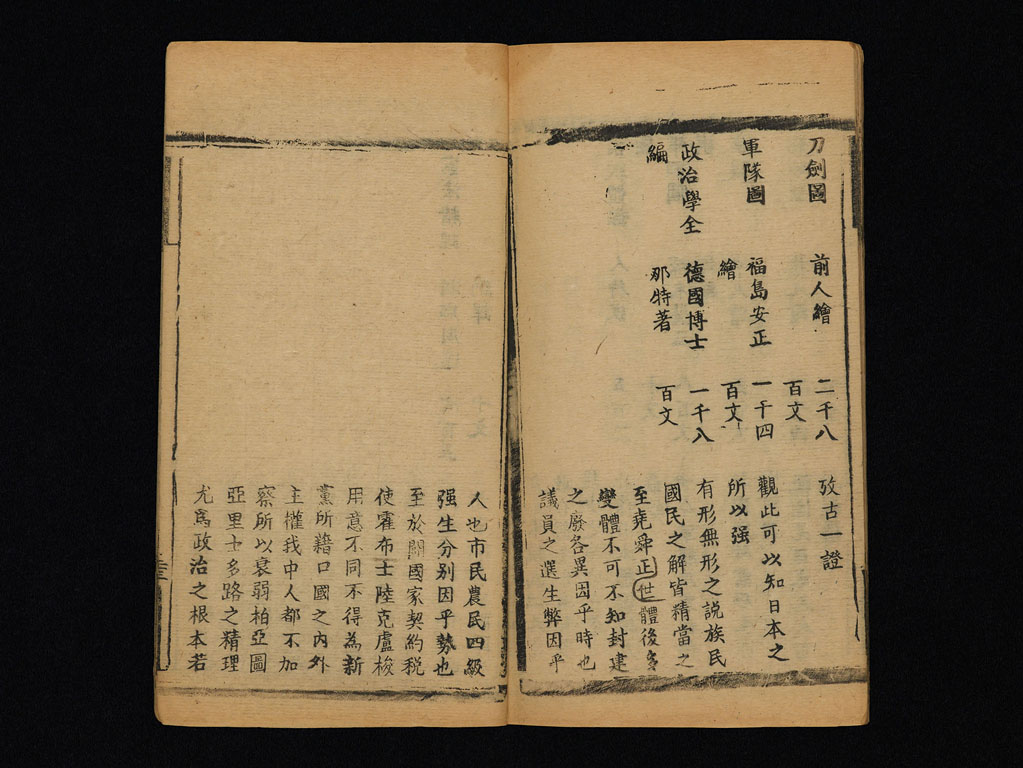 刀劍圖 前人繪 二千八
百文
攷古一證
軍隊圖 福島安正
繪
一千四
百文
觀此可以知日本之
所以强
政治學全
編
德國博士
那特著
一千八
百文
有形無形之説族民
國民之解皆精當之
至堯舜正世體後多
變體不可不知封建
之廢各異因乎時也
議員之選生弊因乎
人也市民農民四級
强生分别因乎勢也
至於闢國家契約税
使霍布士陸克盧梭
用意不同不得為新
黨所藉口國之内外
主權我中人都不加
察所以衰弱柏亞圖
亞里士多路之精理
尤爲政治之根本若